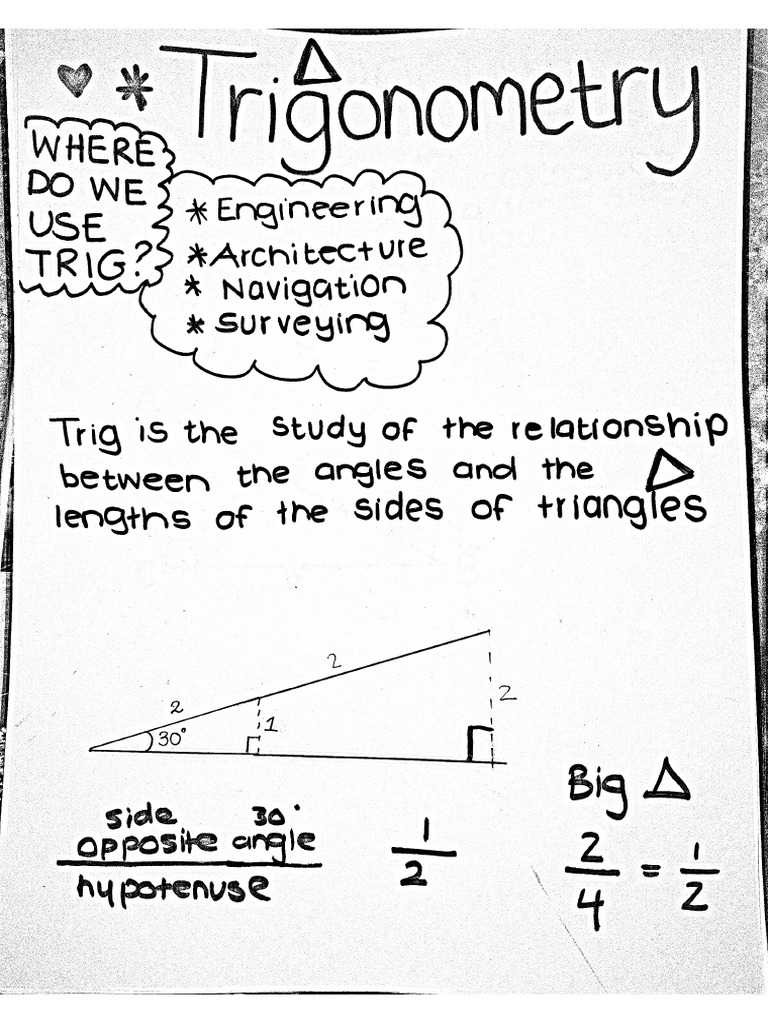 * Trigonometry
WHERE
DO WE
USE
TRIG?
* Engineering
* Architecture
* Navigation
* Surveying
Trig is the study of the relationship
between the angles and the
lengths of the sides of triangles
2
2
30°
1
2
side 30°
opposite angle
hypotenuse
1
2
Big △
2
4
=
1
2